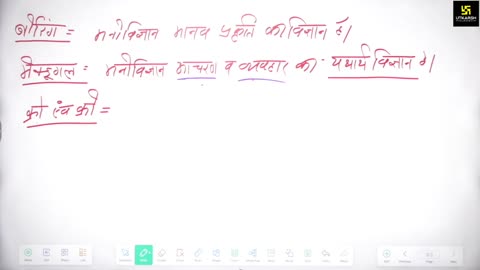 बोरिंग = मनोविज्ञान मानव प्रकृति का विज्ञान है।
मैक्डूगल = मनोविज्ञान आचरण व व्यवहार का यथार्थ विज्ञान है।
क्रो एवं क्रो =
UTKARSH